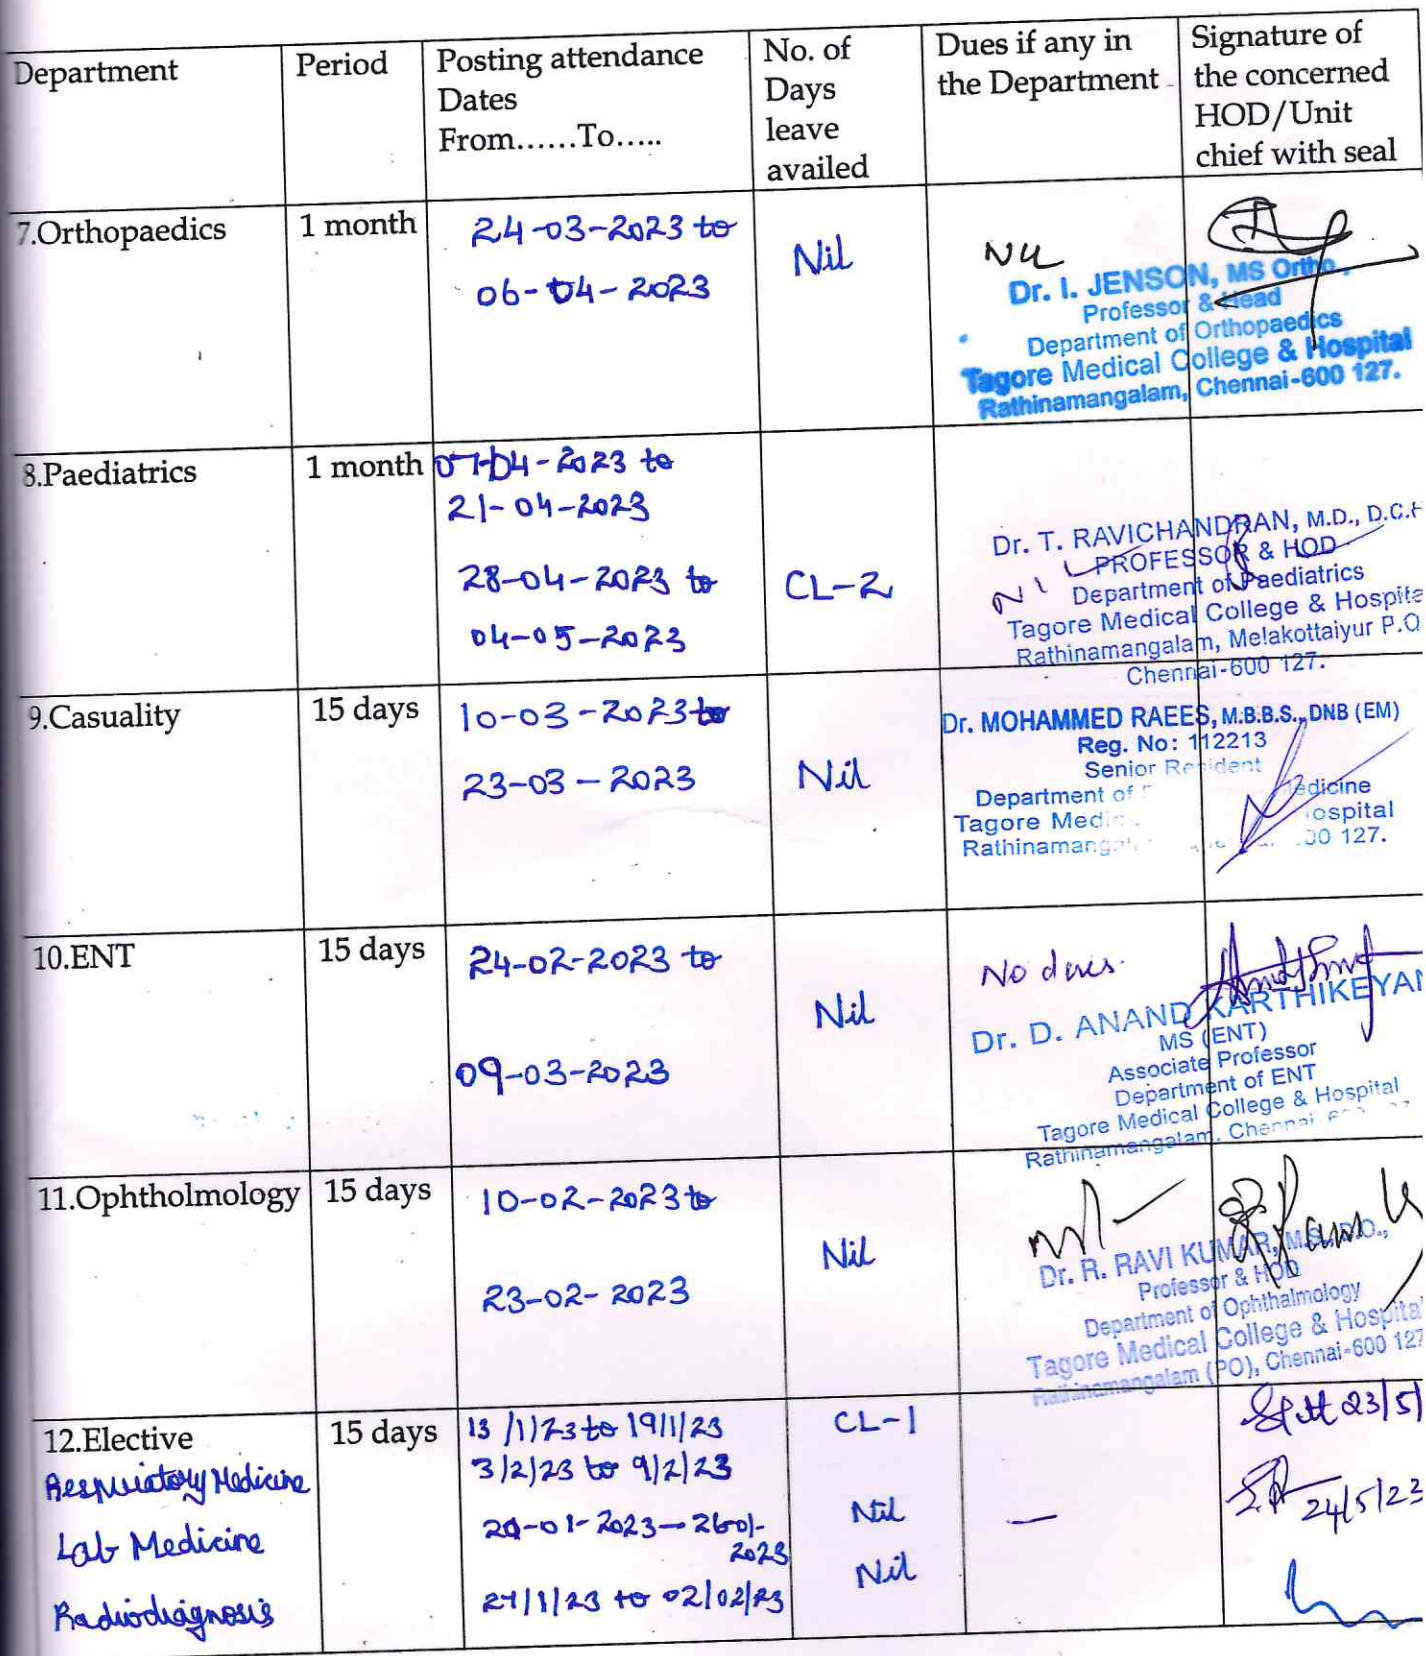 Department
Period
Posting attendance
Dates
From......To.....
No. of
Days
leave
availed
Dues if any in
the Department
Signature of
the concerned
HOD/Unit
chief with seal
7.Orthopaedics
1 month
24-03-2023 to
06-04-2023
Nil
Nil
Dr. I. JENSON, MS Ortho.,
Professor & Head
Department of Orthopaedics
Tagore Medical College & Hospital
Rathinamangalam, Chennai-600 127.
8.Paediatrics
1 month
07-04-2023 to
21-04-2023
28-04-2023 to
04-05-2023
CL-2
Nil
Dr. T. RAVICHANDRAN, M.D., D.C.H
PROFESSOR & HOD
Department of Paediatrics
Tagore Medical College & Hospita
Rathinamangalam, Melakottaiyur P.O
Chennai-600 127.
9.Casuality
15 days
10-03-2023 to
23-03-2023
Nil
Dr. MOHAMMED RAEES, M.B.B.S., DNB (EM)
Reg. No: 112213
Senior Resident
Department of
edicine
Tagore Medic
ospital
Rathinamanga
00 127.
10.ENT
15 days
24-02-2023 to
09-03-2023
Nil
No dues.
Dr. D. ANAND KARTHIKEYAN
MS (ENT)
Associate Professor
Department of ENT
Tagore Medical College & Hospital
Rathinamangalam, Chennai
11.Ophtholmology
15 days
10-02-2023 to
23-02-2023
Nil
Nil
Dr. R. RAVI KUMAR, M.S., D.O.,
Professor & HOD
Department of Ophthalmology
Tagore Medical College & Hospital
Rathinamangalam (PO), Chennai-600 127
12.Elective
15 days
Respiratory Medicine
13/1/23 to 19/1/23
3/2/23 to 9/2/23
CL-1
23/5/
Lab Medicine
20-01-2023 - 26-01-
2023
Nil
—
24/5/23
Radiodiagnosis
27/1/23 to 02/02/23
Nil